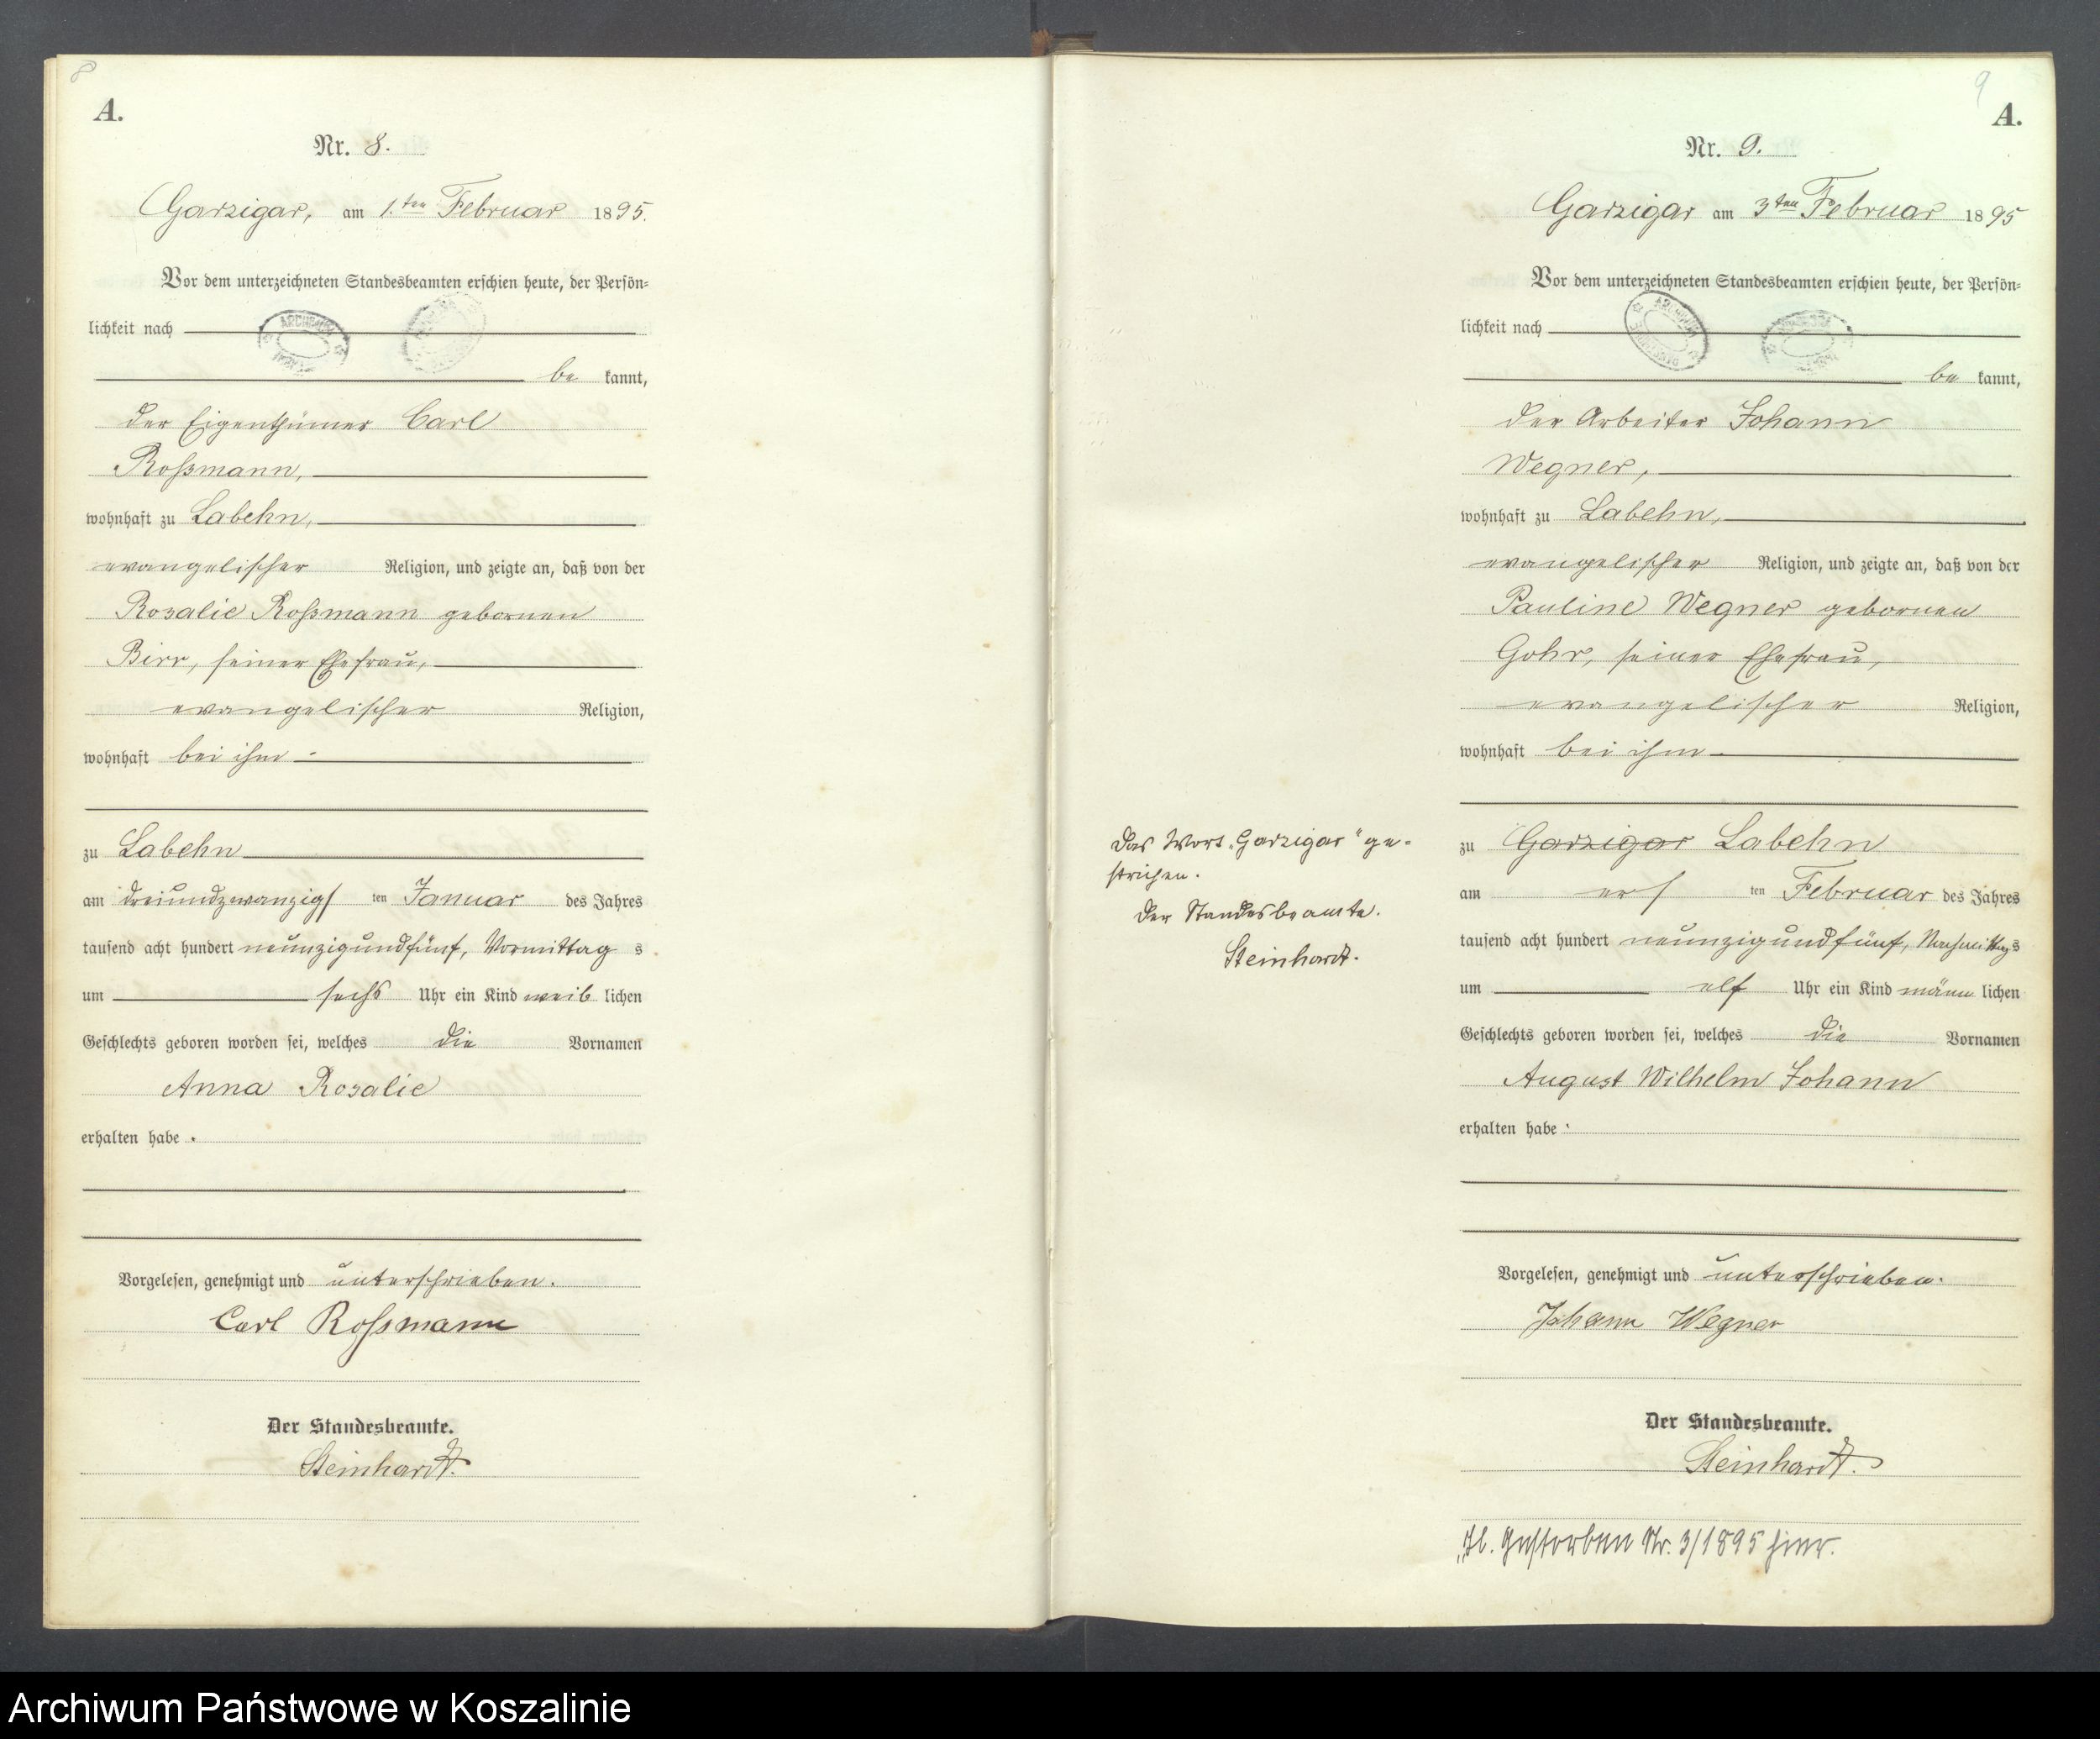 8
A.
Nr. 8.
Garzigar, am 1.ten Februar 1895.
Vor dem unterzeichneten Standesbeamten erschien heute, der Persön=
lichkeit nach
be kannt,
der Eigenthümer Carl
Roßmann,
wohnhaft zu Labehn,
evangelischer Religion, und zeigte an, daß von der
Rosalie Roßmann gebornen
Birr, seiner Ehefrau,
evangelischer Religion,
wohnhaft bei ihm
zu Labehn
am dreiundzwanzigs ten Januar des Jahres
tausend acht hundert neunzigundfünf, Vormittag s
um sechs Uhr ein Kind weib lichen
Geschlechts geboren worden sei, welches die Vornamen
Anna Rosalie
erhalten habe.
Vorgelesen, genehmigt und unterschrieben.
Carl Roßmann
Der Standesbeamte.
Steinhardt.
9
A.
Nr. 9.
Garzigar am 3ten Februar 1895
Vor dem unterzeichneten Standesbeamten erschien heute, der Persön=
lichkeit nach
be kannt,
der Arbeiter Johann
Wegner,
wohnhaft zu Labehn,
evangelischer Religion, und zeigte an, daß von der
Pauline Wegner gebornen
Gohr, seiner Ehefrau,
evangelischer Religion,
wohnhaft bei ihm
zu Garzigar Labehn
am ers ten Februar des Jahres
tausend acht hundert neunzigundfünf, Nachmittags
um elf Uhr ein Kind männ lichen
Geschlechts geboren worden sei, welches die Vornamen
August Wilhelm Johann
erhalten habe.
Vorgelesen, genehmigt und unterschrieben.
Johann Wegner
Der Standesbeamte.
Steinhardt.
Das Wort „Garzigar" ge-
strichen.
Der Standesbeamte.
Steinhardt.
Gestorben Nr. 3/1895 hier.
Archiwum Państwowe w Koszalinie